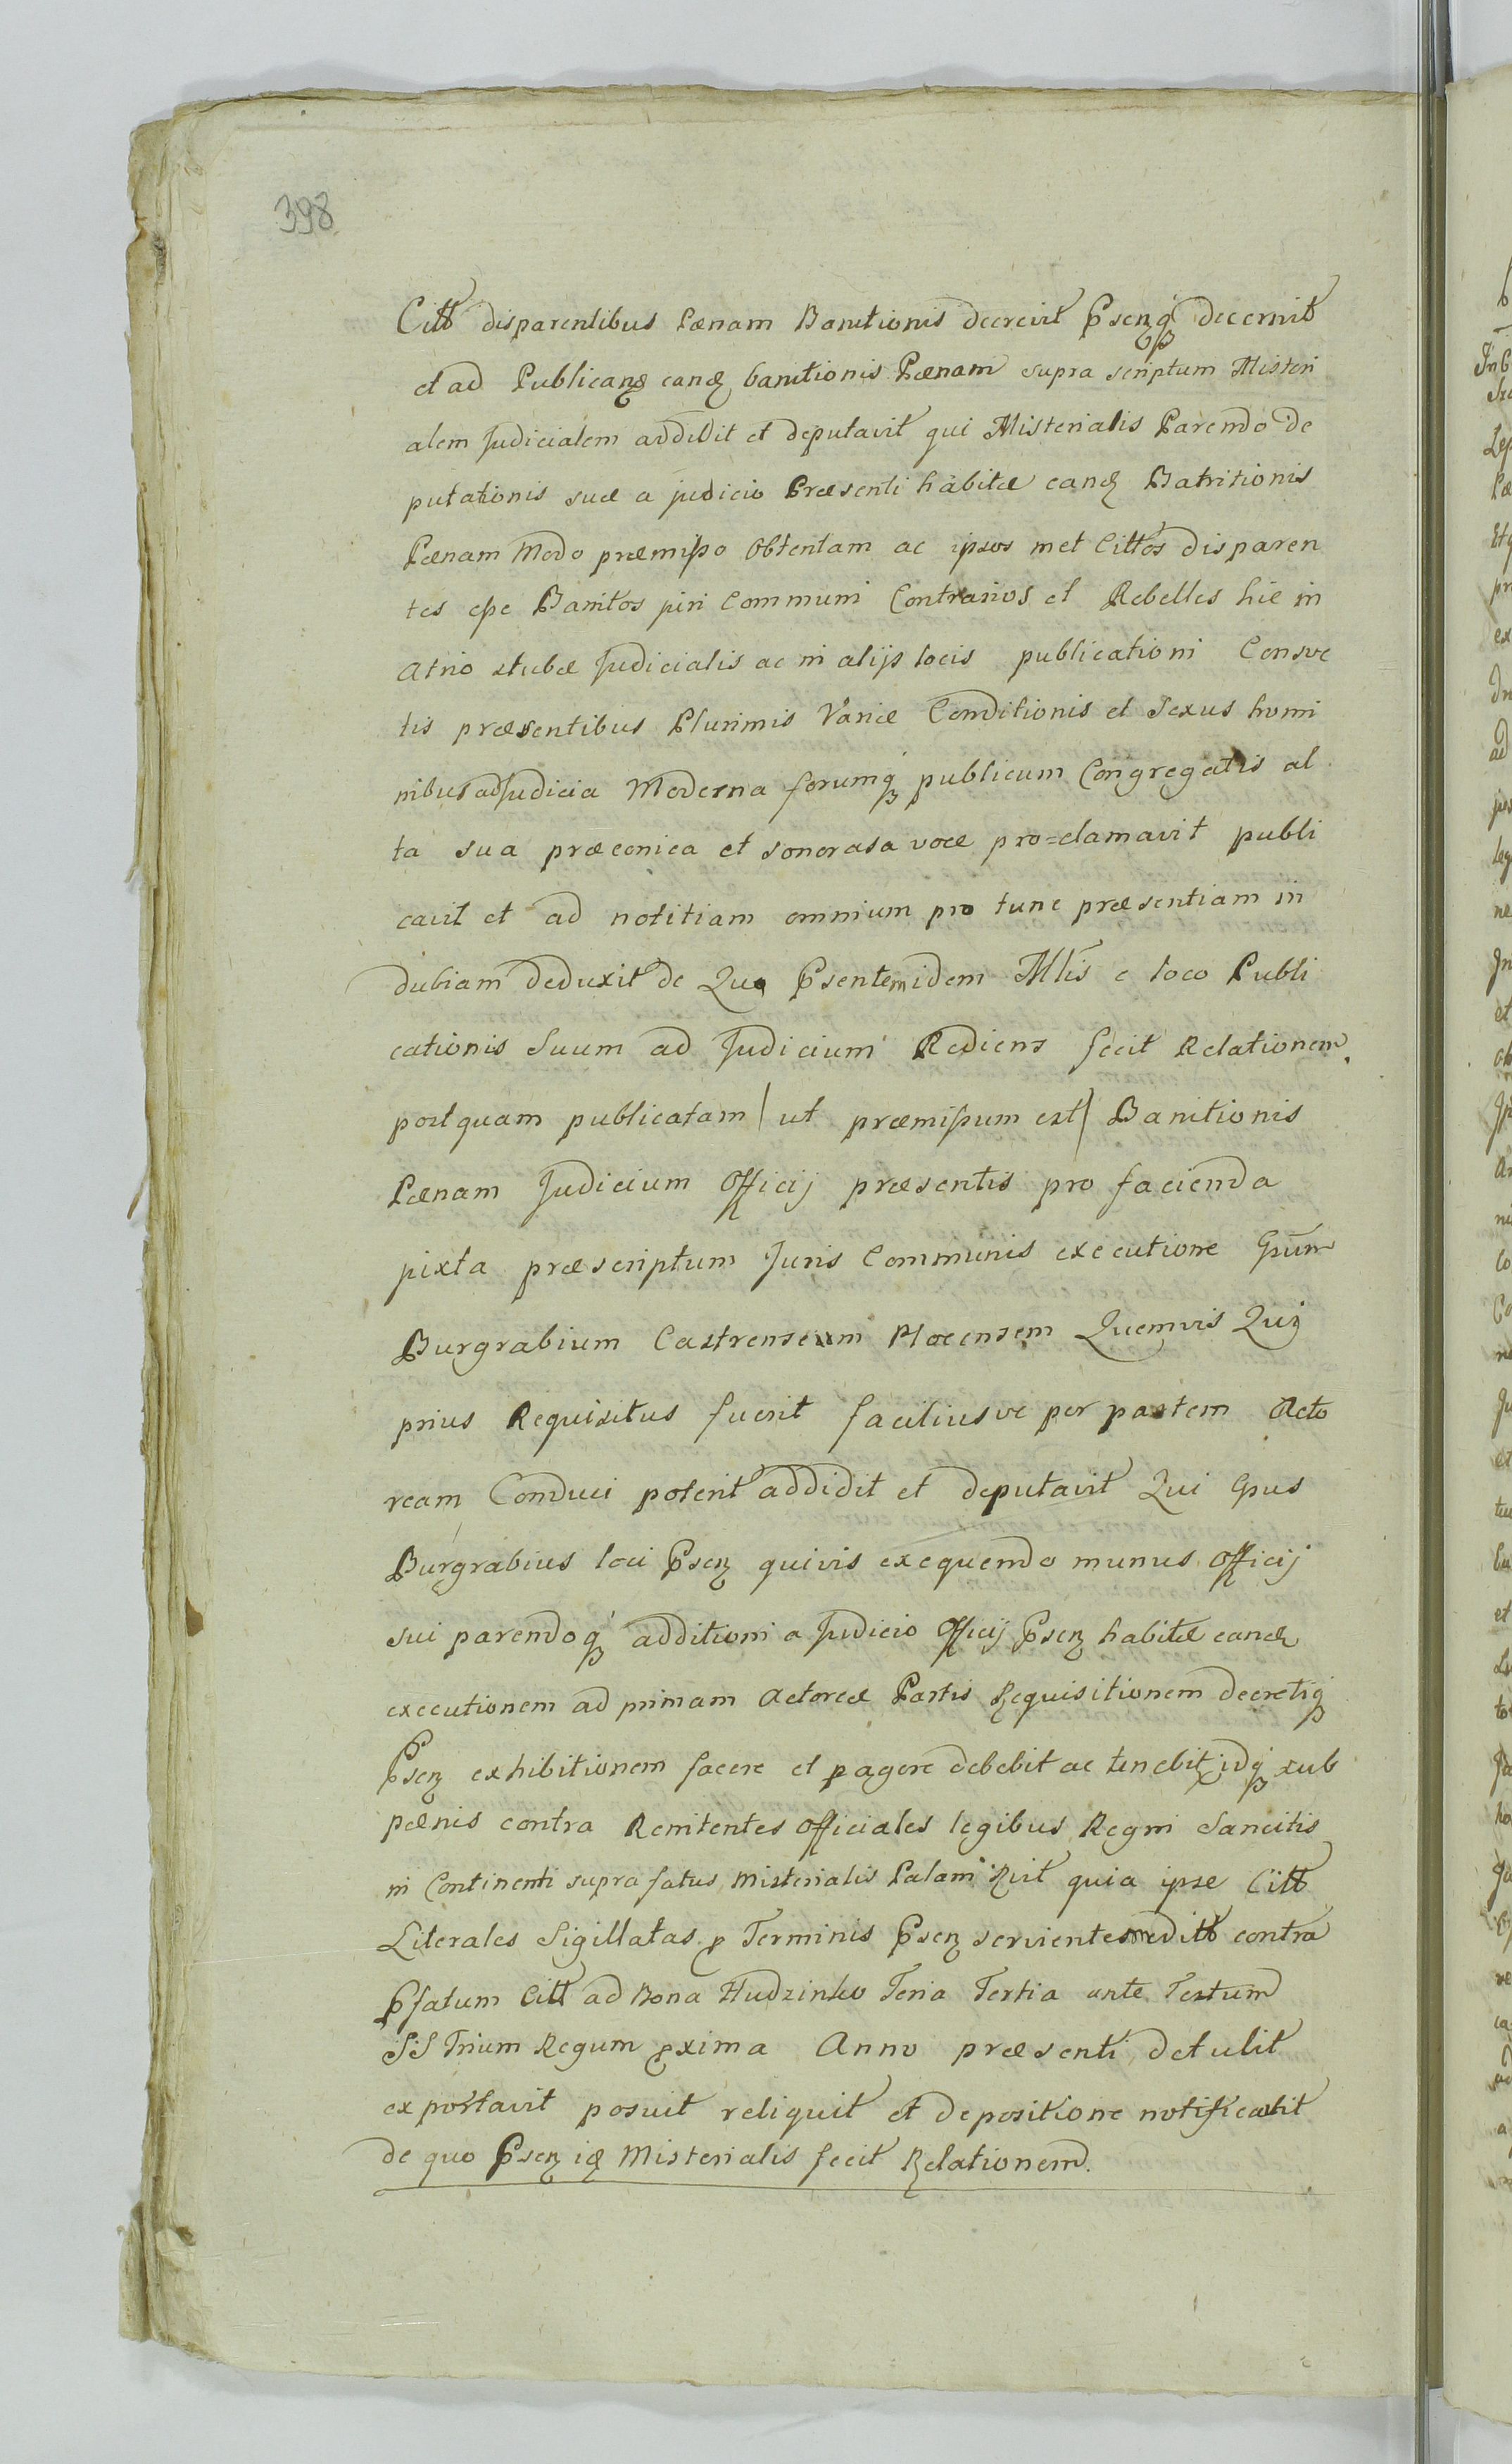 398
Citt disparentibus Pœnam Banitionis decrevit Psenq decernit
et ad Publicand eand banitionis Pœnam supra scriptum Misteri
alem Judicialem addidit et deputavit qui Misterialis Parendo de
putationis suæ a judicio Præsenti habitæ eand Batnitionis
Pœnam Modo præmisso Obtentam ac ipsos met Cittos disparen
tes esse Banitos juri Communi Contrarios et Rebelles hic in
Atrio stubæ Judicialis ac in alijs locis publicationi Consve
tis præsentibus Plurimis Variæ Conditionis et Sexus homi
nibus ad Judicia Moderna forumq publicum Congregatis al
ta sua præconica et sonorasa voce pro=clamavit publi
cavit et ad notitiam omnium pro tunc præsentiam in
dubiam deduxit de Qua Psentem idem Mlis e loco Publi
cationis Suum ad Judicium Rediens fecit Relationem.
postquam publicatam / ut præmissum est / Banitionis
Pœnam Judicium Officij præsentis pro facienda
juxta præscriptum Juris Communis executione Gsum
Burgrabium Castrenseum Plocensem Quemvis Qui
prius Requisitus fuerit faciliusve per partem Acto
ream Conduci poterit addidit et deputavit Qui Gsus
Burgrabius loci Psen quivis exequendo munus Officij
sui parendoq additioni a Judicio Officij Psen habitæ eand
executionem ad primam Actoreæ Partis Requisitionem decretiq
Psen exhibitionem facere et pagere debebit ac tenebit idq sub
pœnis contra Renitentes Officiales legibus Regni Sancitis
in Continenti supra fatus Misterialis Palam Rvit quia ipse Citt
Literales Sigillatas p Terminis Psen servientes editt contra
Pfatum Citt ad Bona Hudzinko Feria Tertia ante Festum
SS Trium Regum pxima Anno præsenti detulit
exportavit posuit reliquit et depositione notificavit
de quo Psen id Misterialis fecit Relationem.